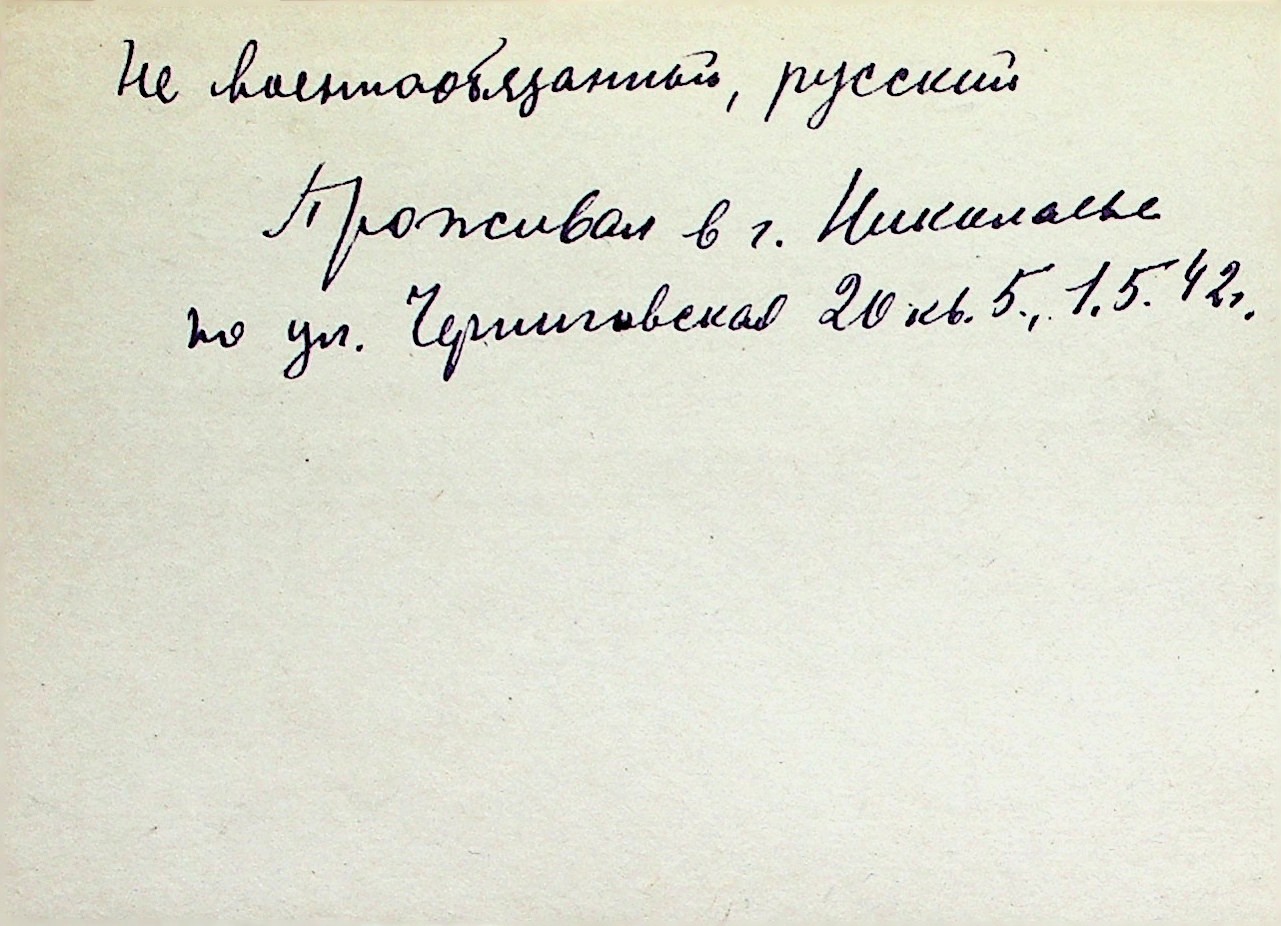 Не военнаобязанный, русский
Проживал в г. Николаеве
по ул. Черниговская 20 кв. 5., 1.5.42г.